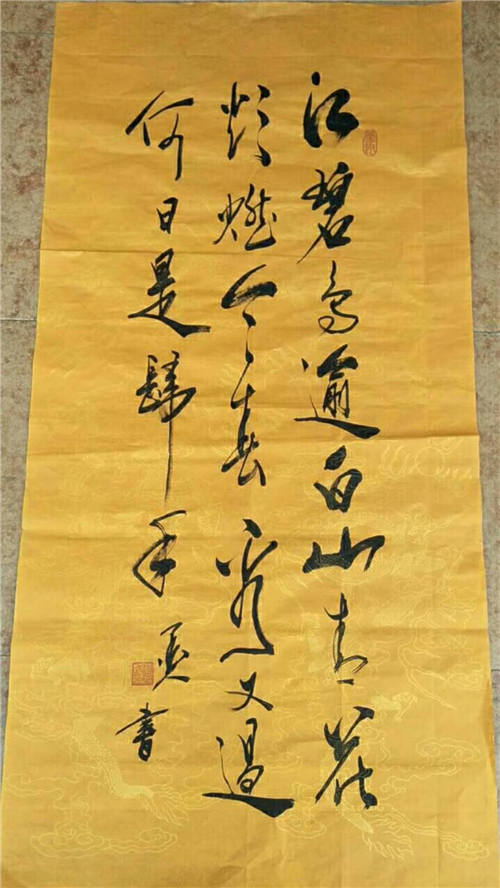 江碧鳥逾白山青花
欲燃今春看又過
何日是歸年
書